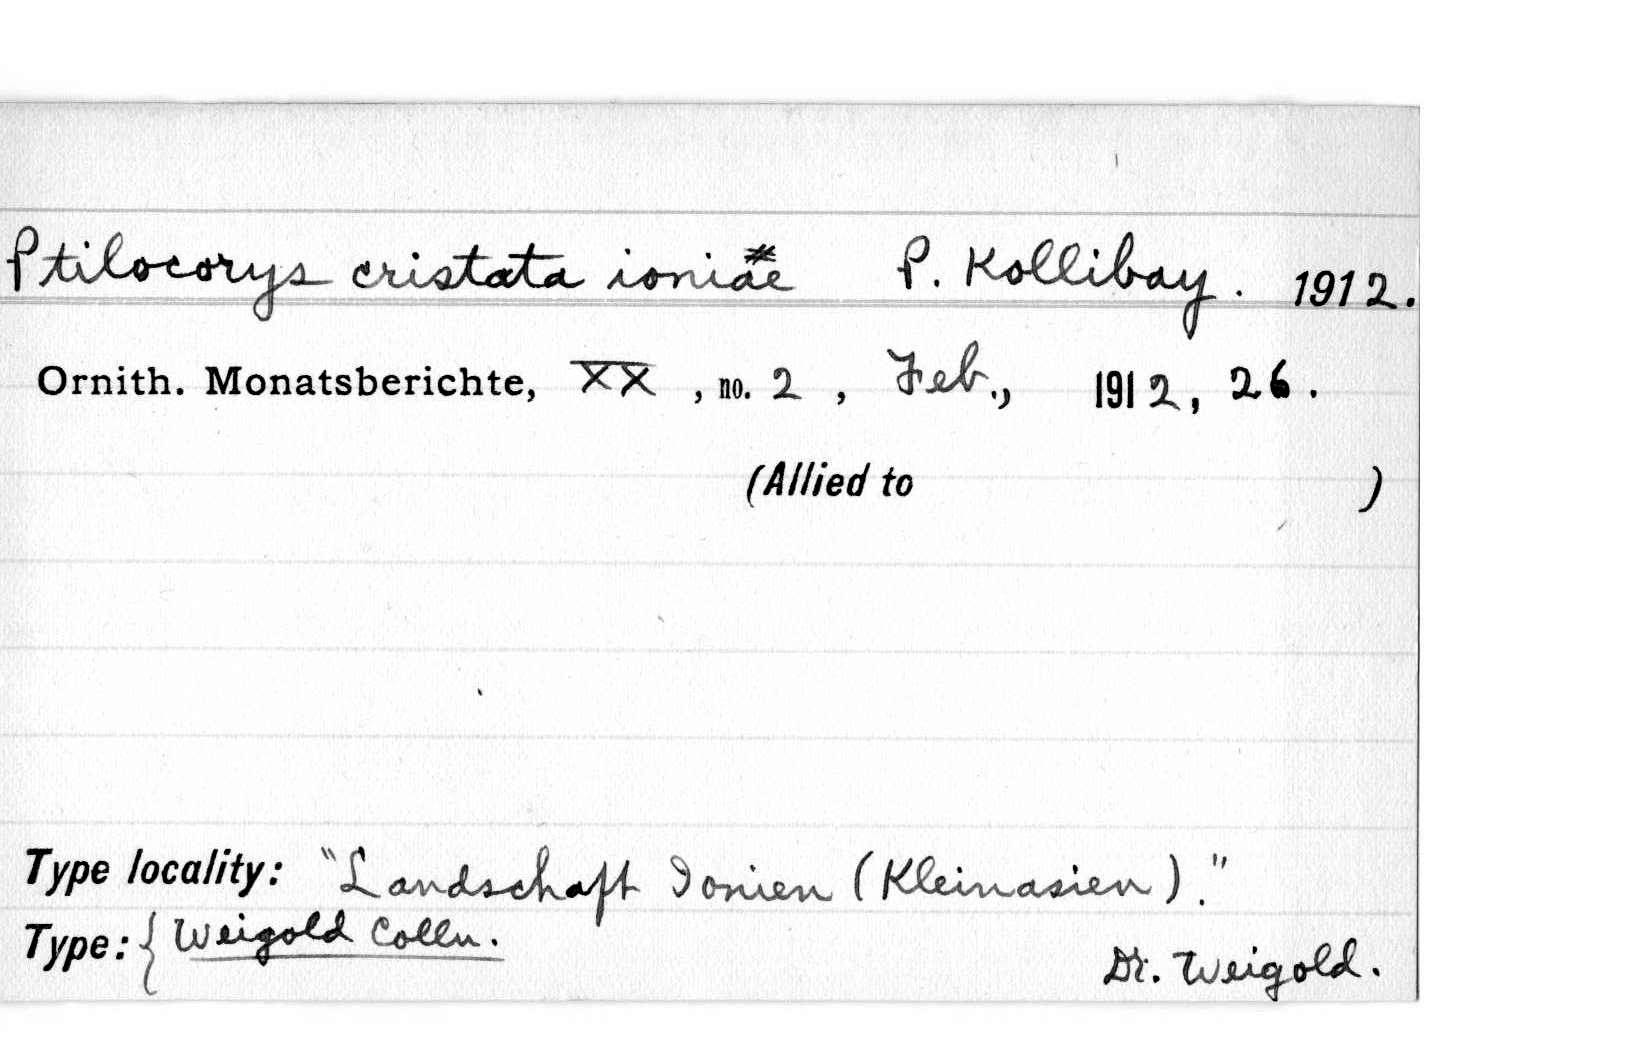 Ptilocorys cristata ioniae P. Kollibay. 1912.
Ornith. Monatsberichte, XX, no. 2, Feb., 1912, 26.
(Allied to )
Type locality: "Landschaft Ionien (Kleinasien)."
Type: { Weigold Colln.
Dr. Weigold.